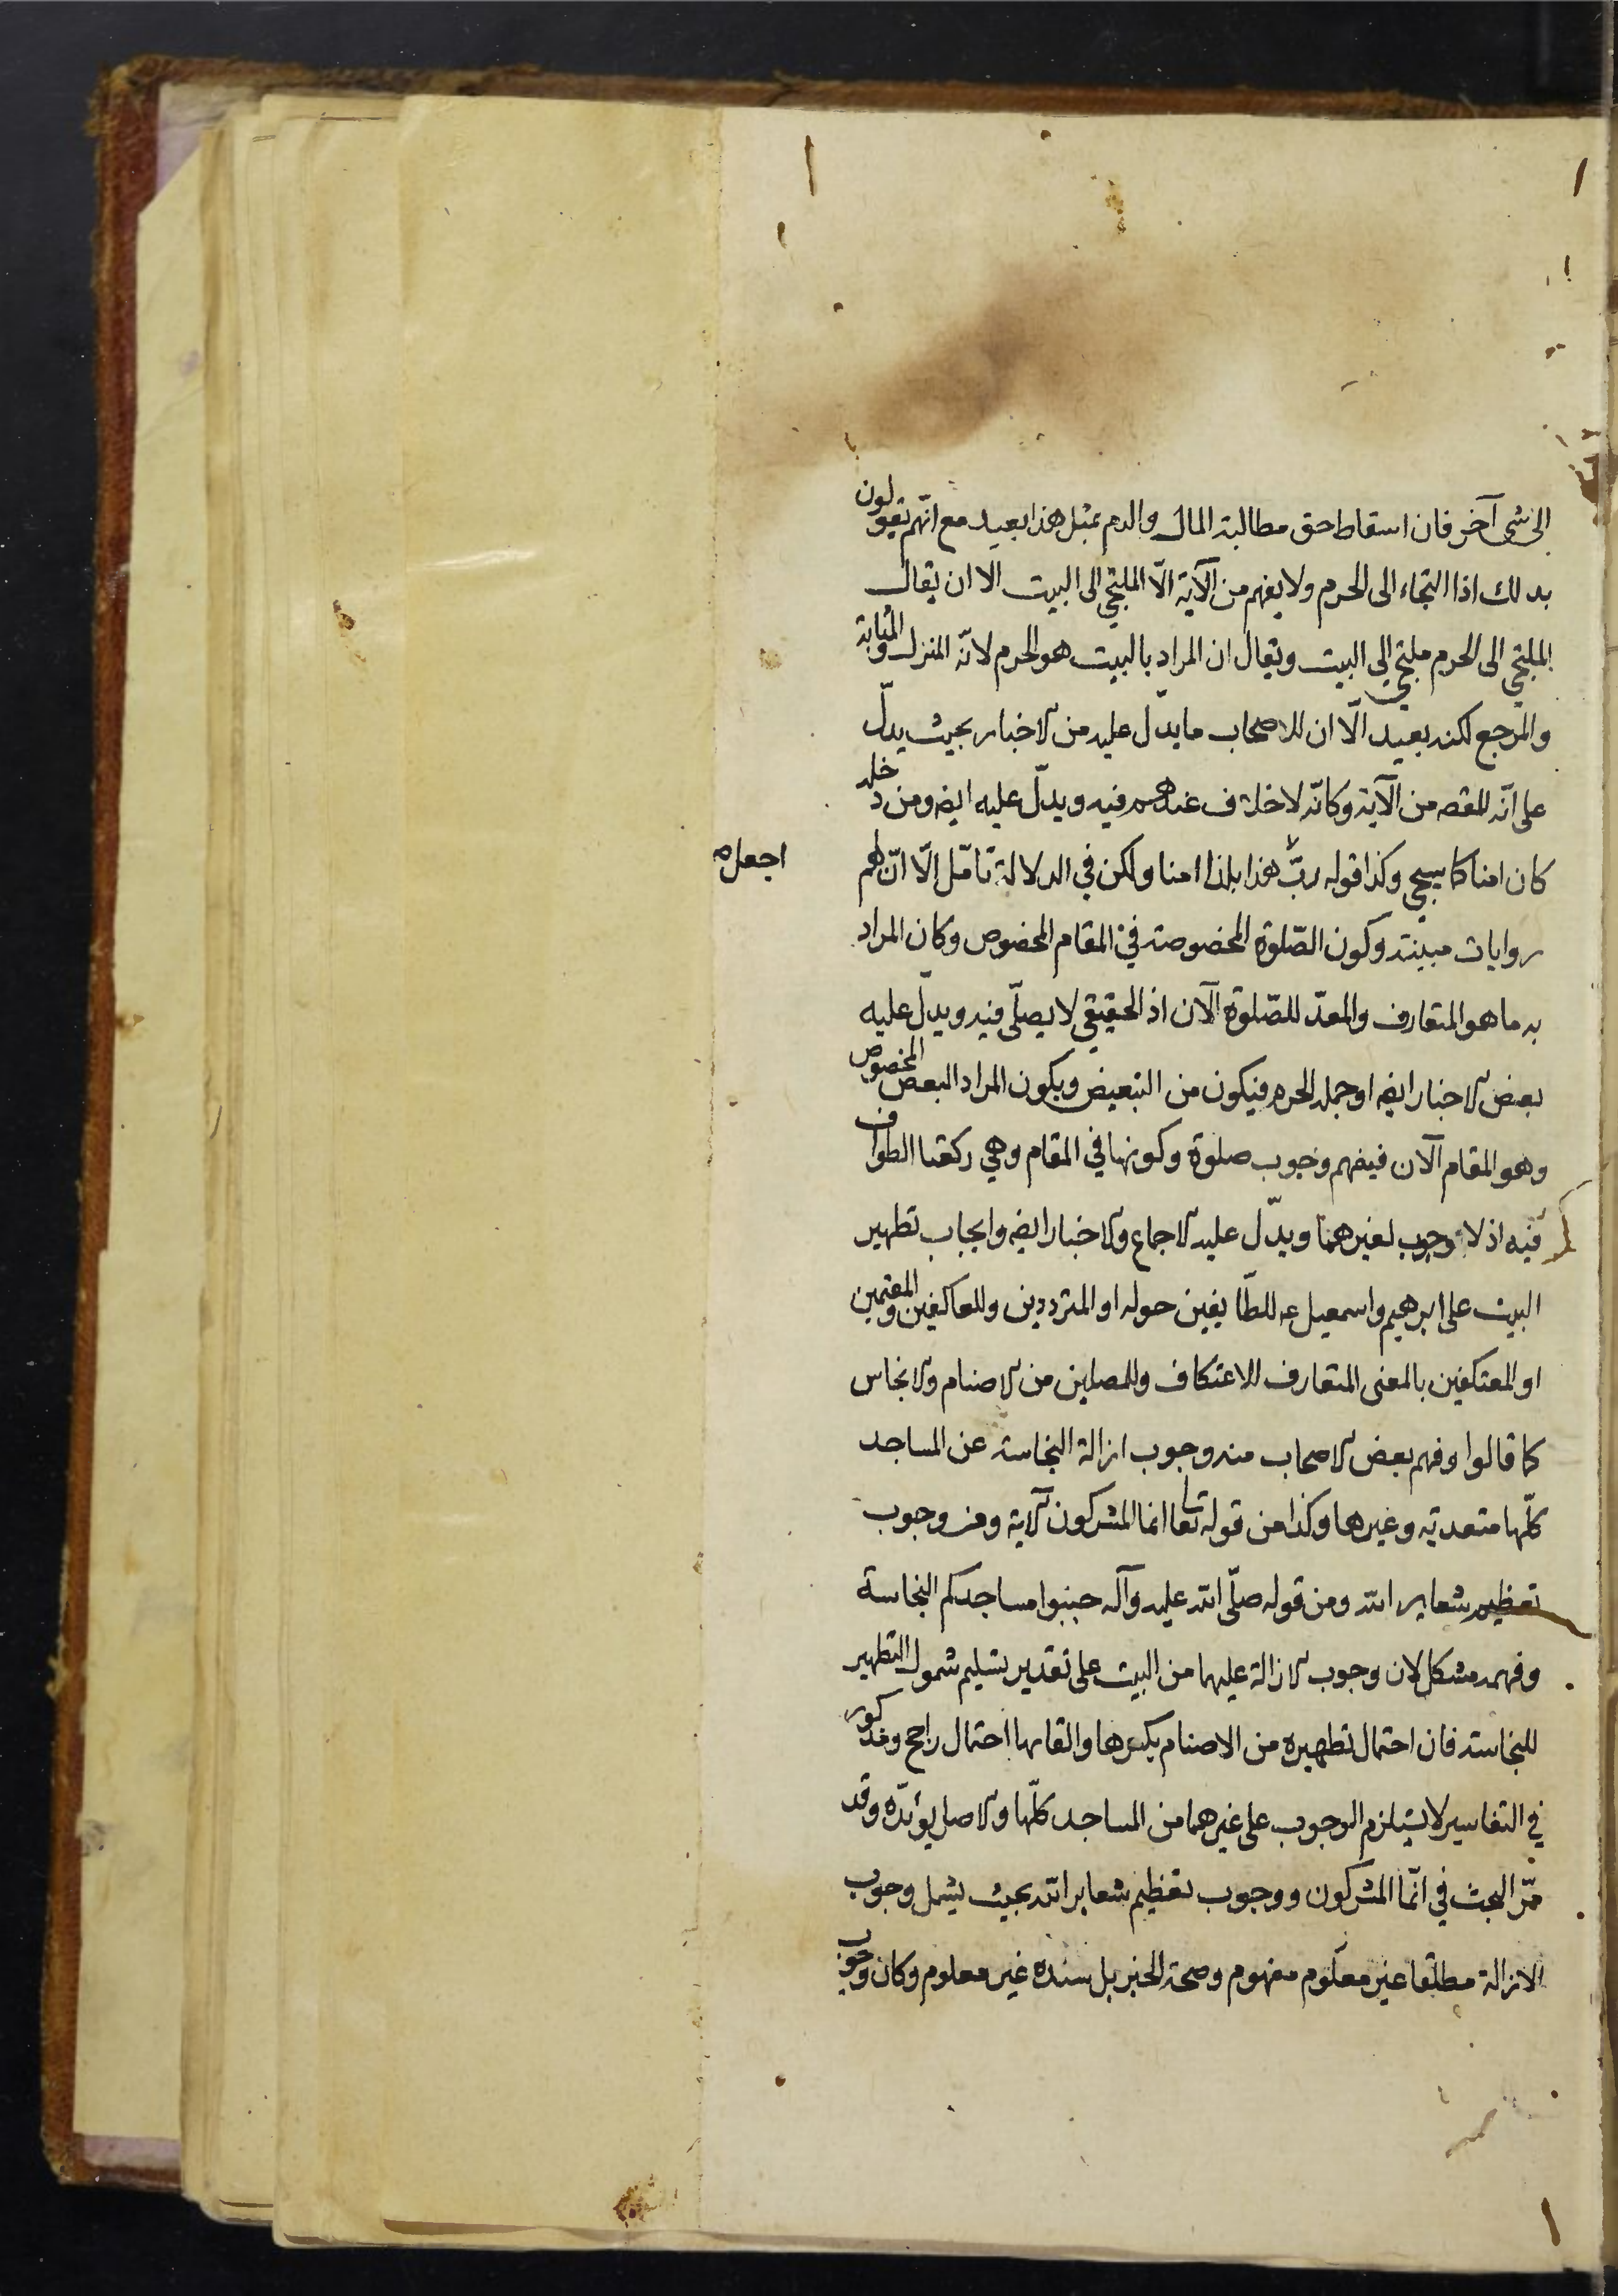 الى شى آخر فان اسقاط حق مطالبة المال والدم بمثل هذا بعيد مع انهم يقولون
بذلك اذا التجاء الى الحرم ولا يفهم من الآية الّا الملتجي الى البيت الا ان يقال
الملتجي الى الحرم ملتجي الى البيت ويقال ان المراد بالبيت هو الحرم لانّه المنزل والمثابة
والمرجع لكنه بعيد الّا ان للاصحاب ما يدّل عليه من الاخبار بحيث يدلّ
على انّه المقصد من الآية وكانّه لا خلاف عندهم فيه ويدلّ عليه ايضا ومن دخله
كان امنا كما سيجي وكذا قوله ربّ هذا بلدا امنا ولكن في الدلالة تامّل الّا انّ لهم
اجعل صح
روايات مبينة وكون الصّلوة المخصوصة في المقام المخصوص وكان المراد
به ما هو المتعارف والمعدّ للصّلوة الآن اذ الحقيقي لا يصلّى فيه ويدلّ عليه
بعض الاخبار ايضا او جملة الحرم فيكون من التبعيض ويكون المراد البعض المخصوص
وهو المقام الآن فيفهم وجوب صلوة وكونها في المقام وهي ركعتا الطواف
فيه اذ لا وجوب لغيرهما ويدّل عليه الاجماع والاخبار ايضا وايجاب تطهير
البيت على ابرهيم واسمعيل ع للطّايفين حوله او المترددين وللعاكفين والمقيمين
او المعتكفين بالمعنى المتعارف للاعتكاف وللمصلين من الاصنام والانجاس
كما قالوا وفهم بعض الاصحاب منه وجوب ازالة النجاسة عن المساجد
كلّها متعدية وغيرها وكذا من قوله تعا انما المشركون الاية ومن وجوب
تعظيم شعاير الله ومن قوله صلّى الله عليه وآله جنبوا مساجدكم النجاسة
وفهمه مشكل لان وجوب الازالة عليهما من البيت على تقدير تسليم شمول التطهير
للنجاسة فان احتمال تطهيره من الاصنام بكسرها والقائها احتمال راجح ومذكور
في التفاسير لا يستلزم الوجوب على غيرهما من المساجد كلّها والاصل يؤيّده وقد
مّر البحث في انّما المشركون ووجوب تعظيم شعاير الله بحيث يشمل وجوب
الازالة مطلقا غير معلوم مفهوم وصحة الخبر بل سنده غير معلوم وكان وجوب